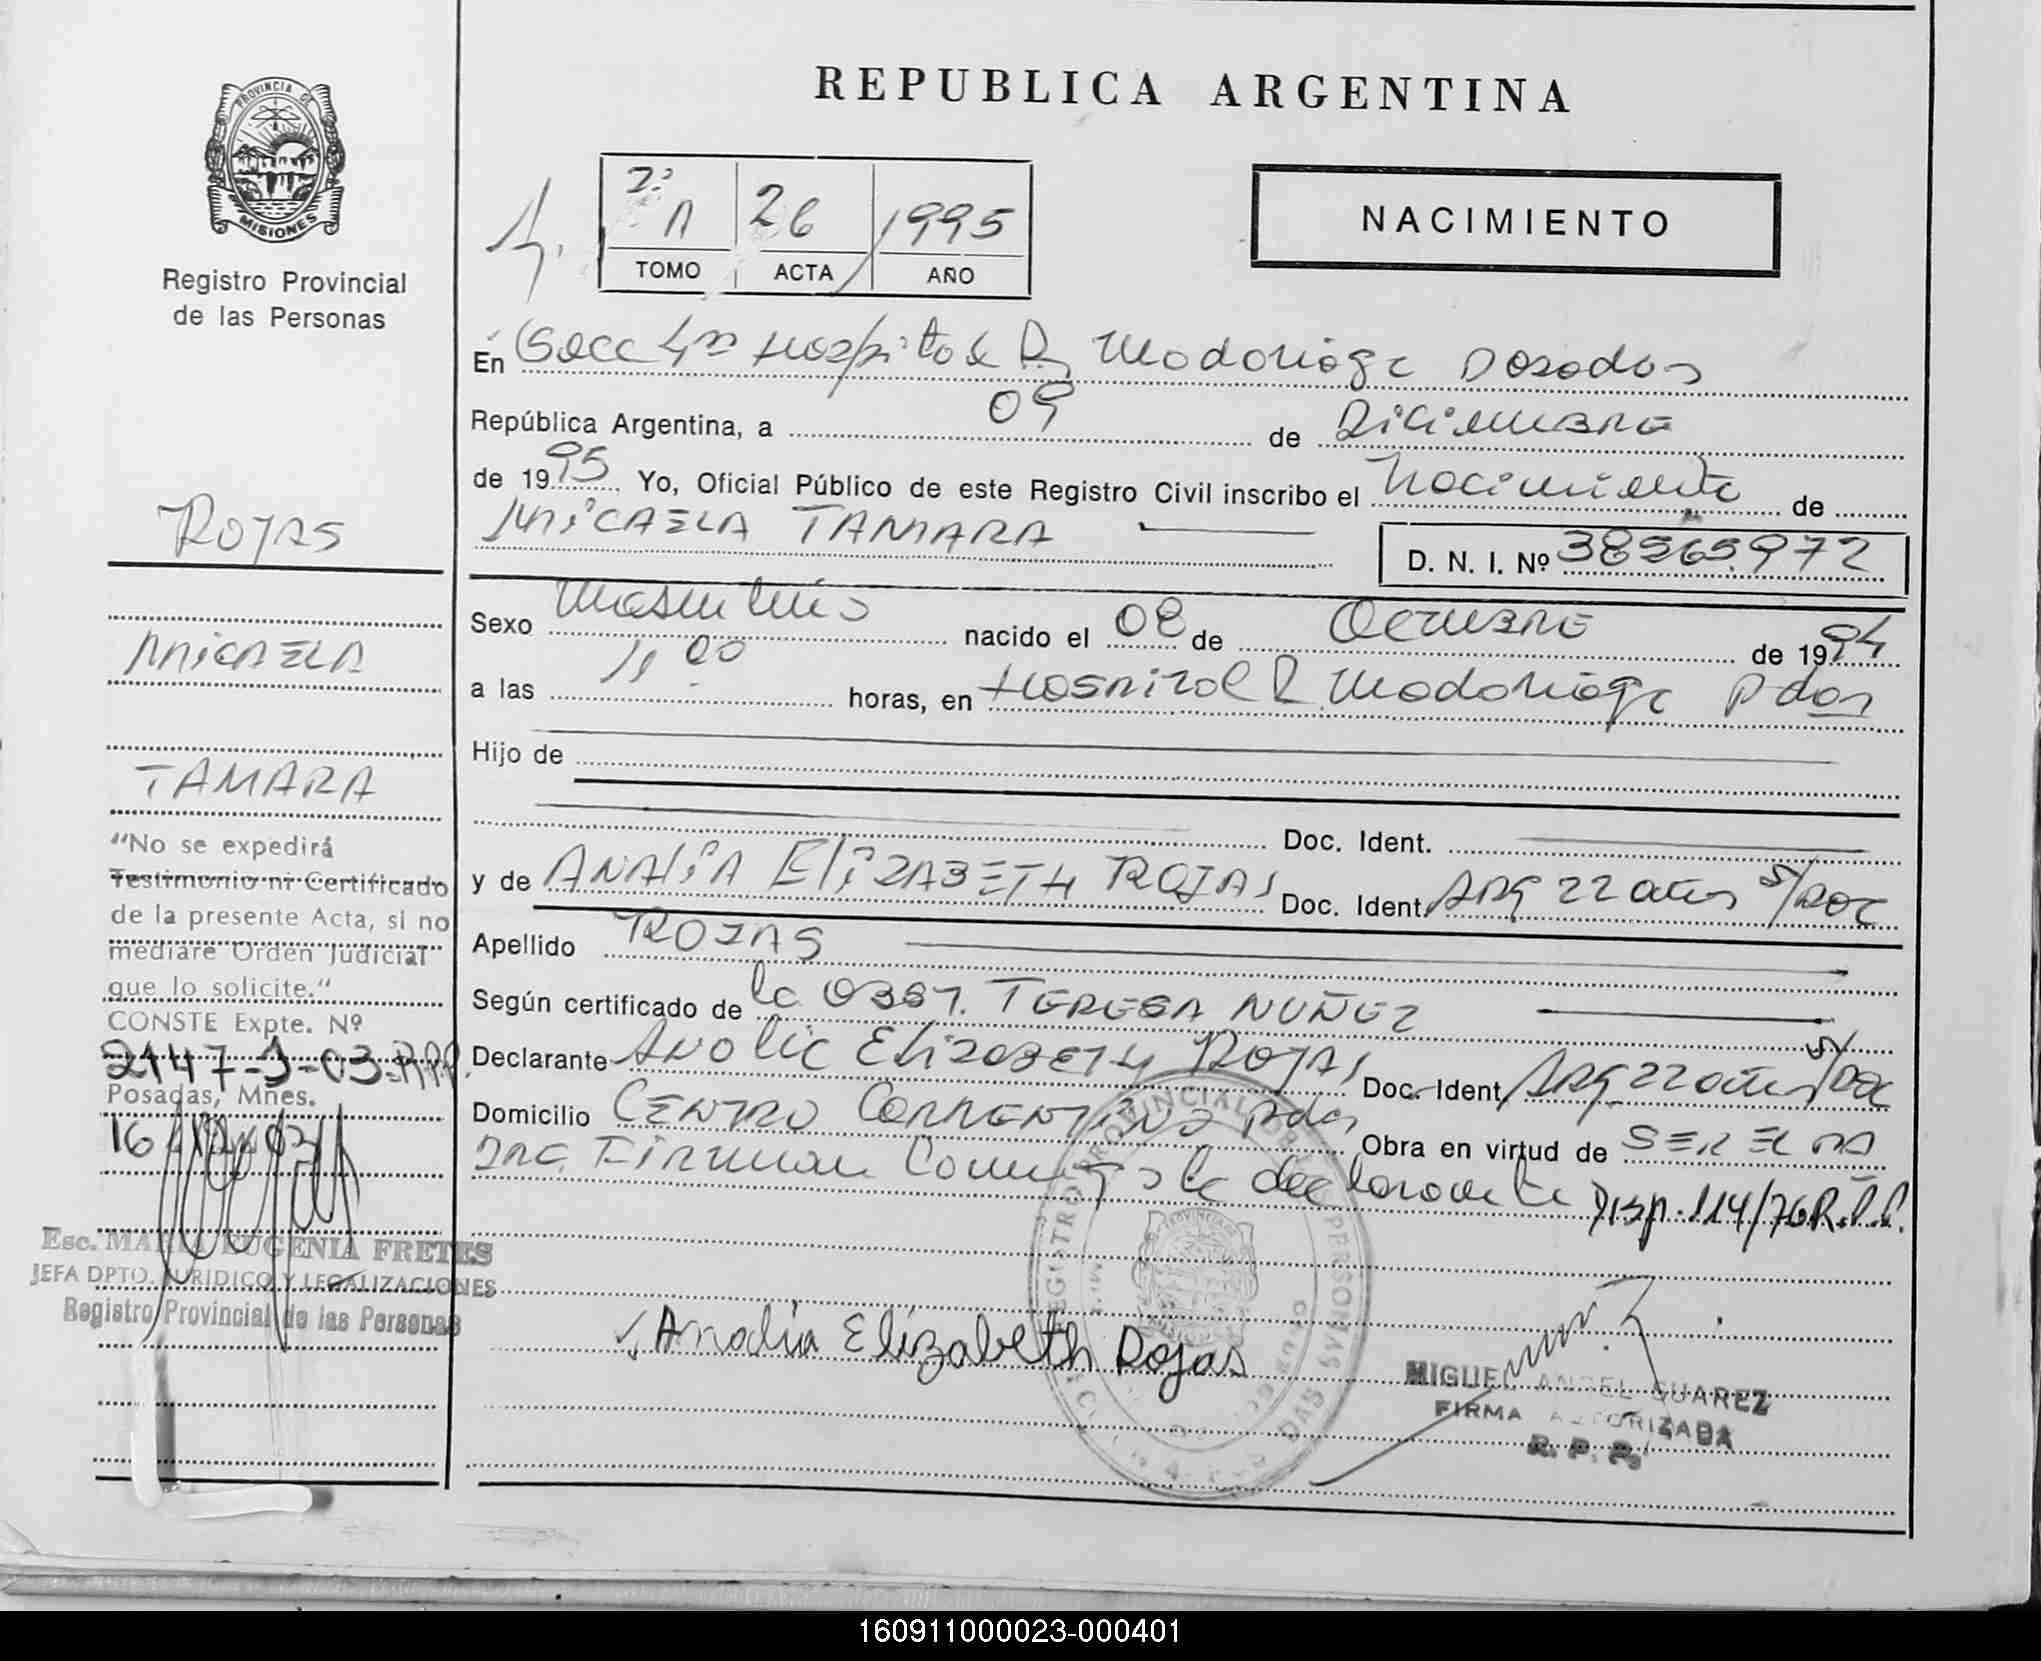 REPUBLICA ARGENTINA
PROVINCIA DE
MISIONES
Registro Provincial
de las Personas
2º A 26 1995
TOMO ACTA AÑO
NACIMIENTO
En Secc 4ta Hospital R Madariaga Posadas
República Argentina, a 09 de Diciembre
de 1995 Yo, Oficial Público de este Registro Civil inscribo el Nacimiento de
MICAELA TAMARA D. N. I. Nº 38565.972
Sexo Masculino nacido el 08 de Octubre de 1994
a las 11,00 horas, en Hospital R Madariaga Pdas
Hijo de
Doc. Ident.
y de ANALIA ElIZABETH ROJAS Doc. Ident. ARG 22 años S/DOC
Apellido ROJAS
Según certificado de la OBST. TERESA NUÑEZ
Declarante Analia Elizabeth ROJAS Doc. Ident. ARG 22 años S/Doc
Domicilio CENTRO CORRENTINO Pdas Obra en virtud de SER EL MA
DRE. Firman Conmigo la declarante Disp. 114/76 R.P.P.
Analia Elizabeth Rojas
MIGUEL ANGEL SUAREZ
FIRMA AUTORIZADA
R. P. P.
ROJAS
MICAELA
TAMARA
"No se expedirá
Testimonio ni Certificado
de la presente Acta, si no
mediare Orden Judicial
que lo solicite."
CONSTE Expte. Nº
2147-J-03-RPP
Posadas, Mnes.
16
Esc. MARIA EUGENIA FRETES
JEFA DPTO. JURIDICO Y LEGALIZACIONES
Registro Provincial de las Personas
REGISTRO PROVINCIAL DE LAS PERSONAS
160911000023-000401